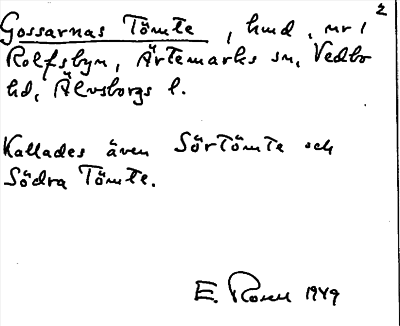 2
Gossarnas Tömte, hmd. nr 1
Rolfsbyn, Ärtemarks sn, Vedbo
hd, Älvsborgs l.
Kallades även Sörtömte och
Södra Tömte.
E. Rosell 1949